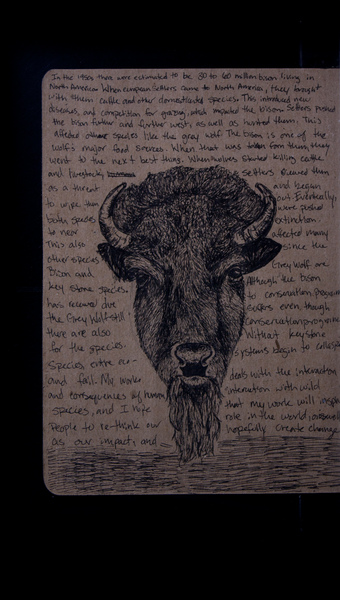 In the 1450s there were estimated to be 30 to 60 million bison living in
North America. When european Settlers came to North America, they brought
with them cattle and other domesticated species. This introduced new
diseases, and competition for grazing, what impacted the bison. Settlers pushed
the bison further and further west, as well as hunted them. This
affected other species like the gray wolf. The bison is one of the
wolf's major food sources. When that was taken from them, they
went to the next best thing. When wolves started killing cattle
and livestock, settlers viewed them
as a threat and began
to wipe them out. Eventually,
both species were pushed
to near extinction.
This also affected many
other species since the
Bison and Grey Wolf are
key stone species. Although the bison
has recovered due to conservation programs
the Grey Wolf still suffers even though
there are also conservation programs
for the species. Without keystone
species entire eco- systems begin to collapse
and fall. My work deals with the interaction
and consequences of human interaction with wild
species, and I hope that my work will inspire
people to re-think our role in the world, as well
as our impact, and hopefully create change